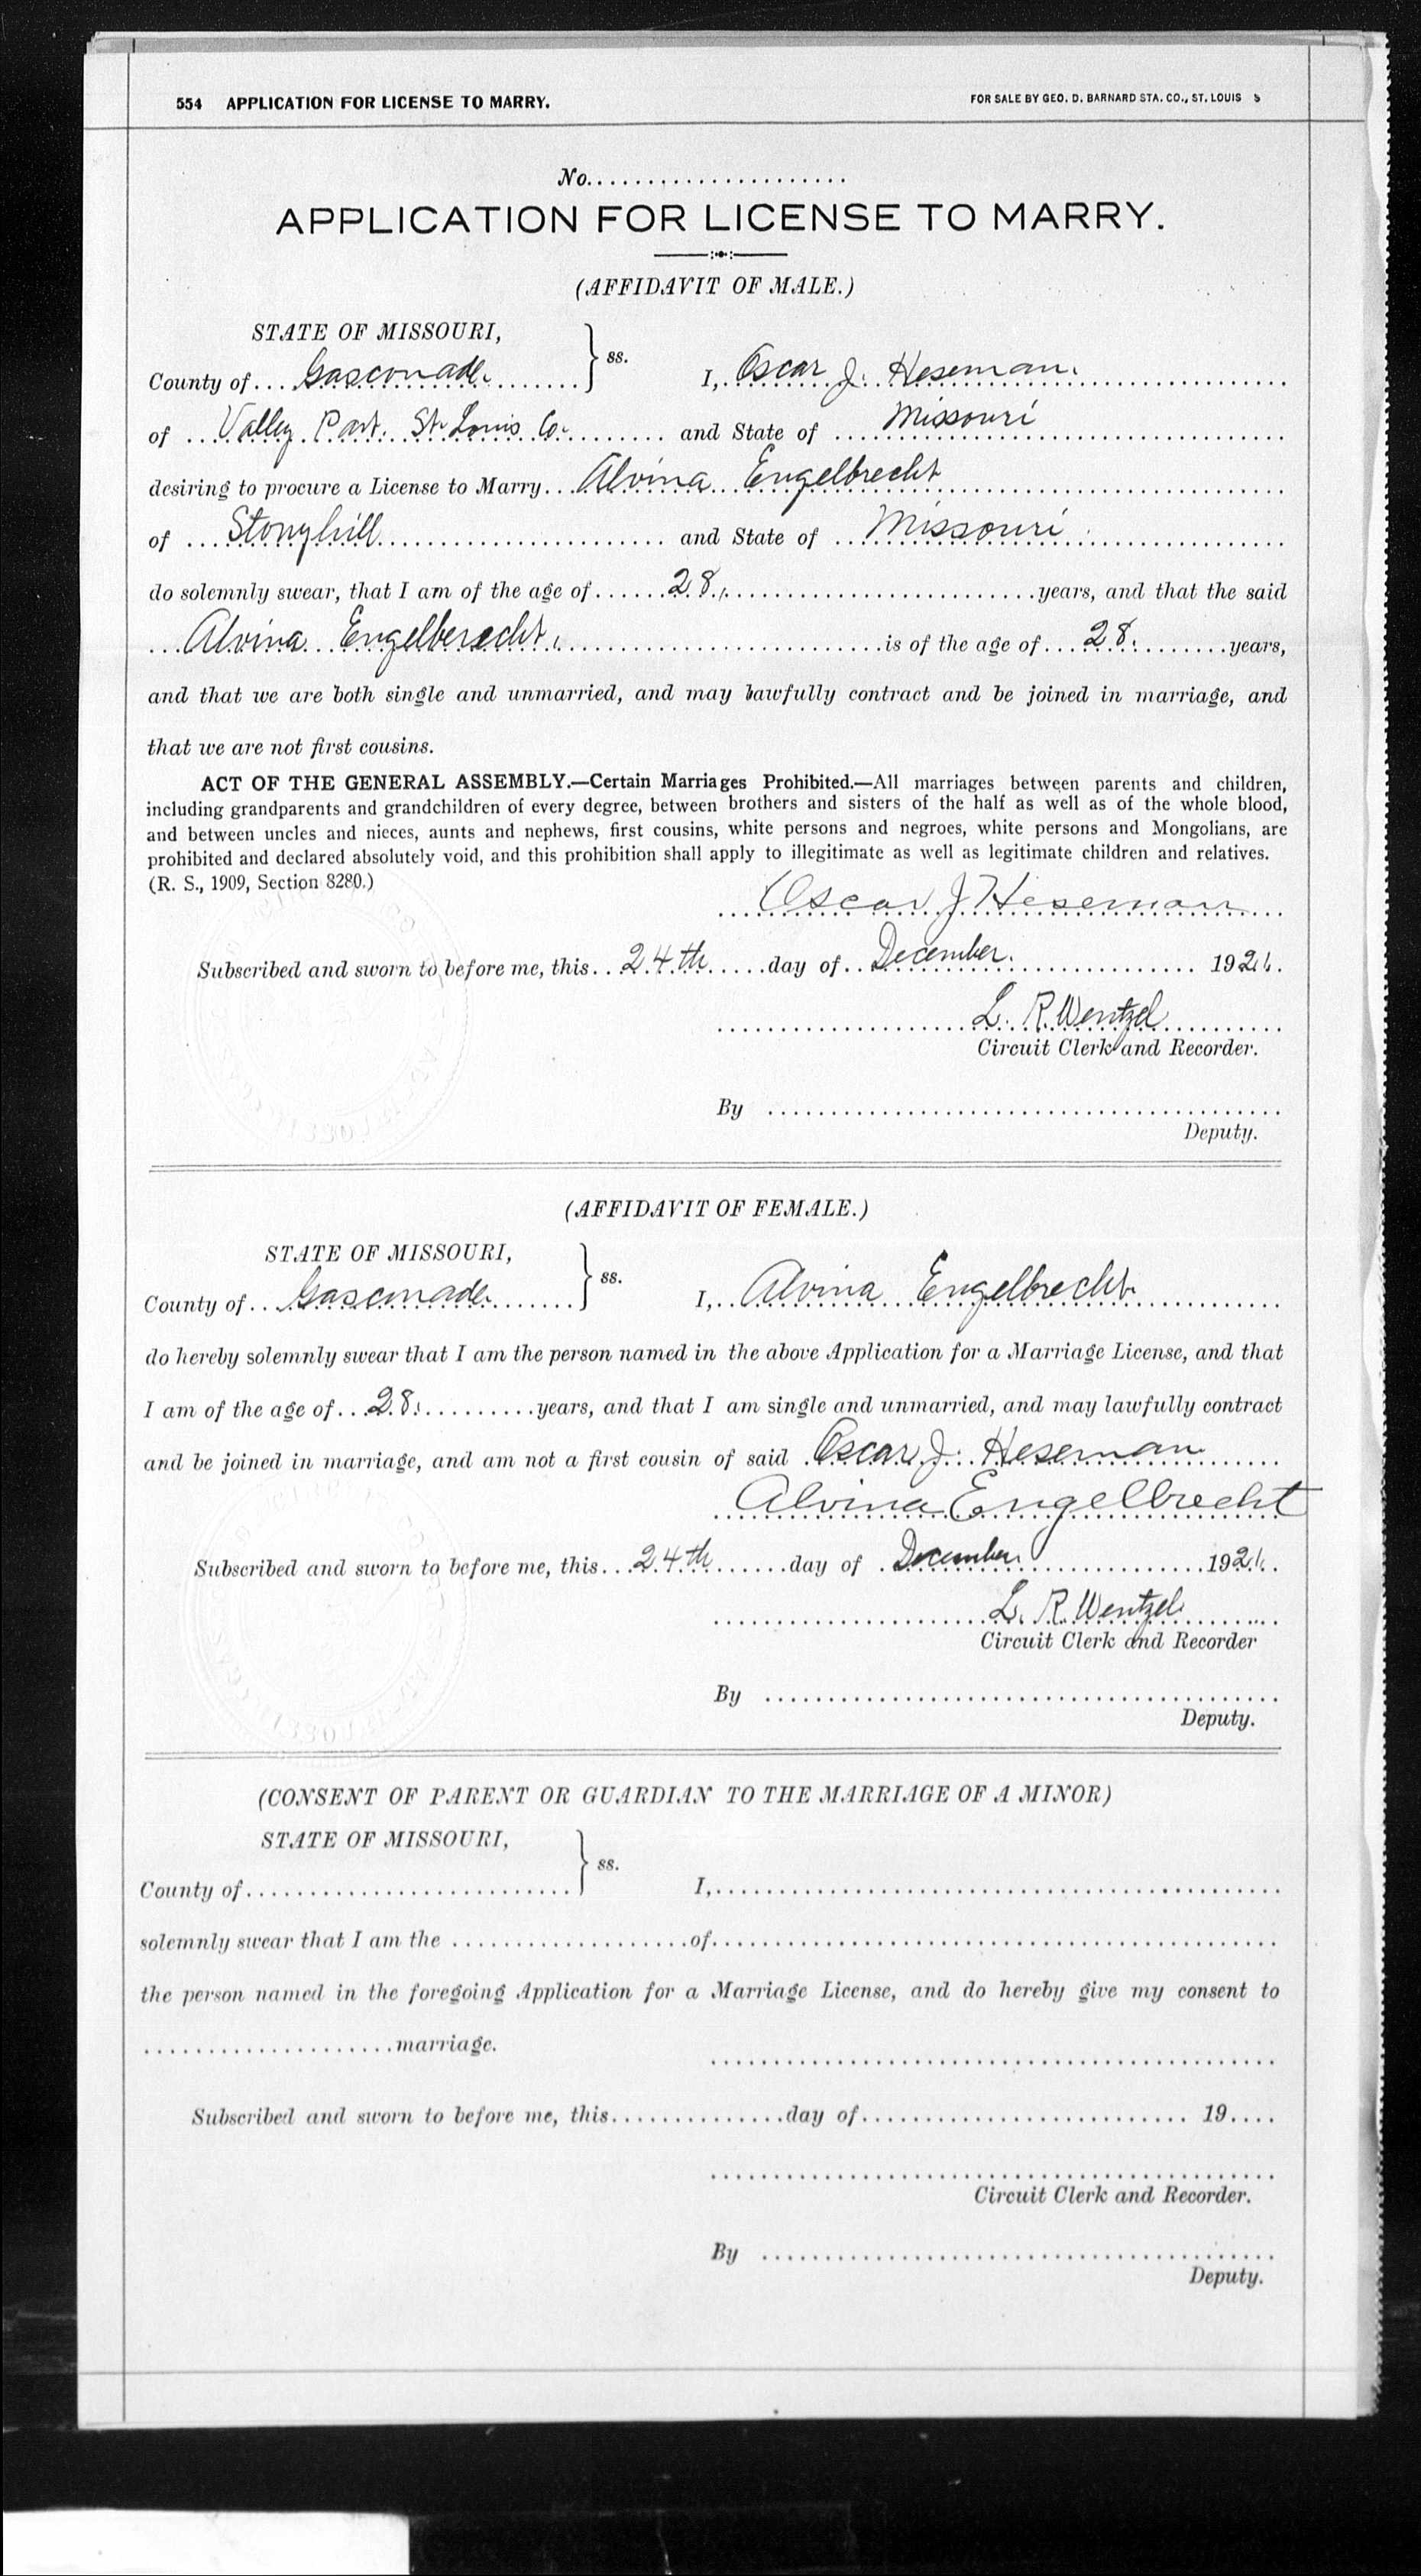 554 APPLICATION FOR LICENSE TO MARRY. FOR SALE BY GEO. D. BARNARD STA. CO., ST. LOUIS
No......................
APPLICATION FOR LICENSE TO MARRY.
(AFFIDAVIT OF MALE.)
STATE OF MISSOURI,
County of Gasconade } ss. I, Oscar J. Heseman.
of Valley Park. St. Louis Co. and State of Missouri
desiring to procure a License to Marry Alvina Engelbrecht
of Stonyhill and State of Missouri
do solemnly swear, that I am of the age of 28, years, and that the said
Alvina Engelberecht, is of the age of 28. years,
and that we are both single and unmarried, and may lawfully contract and be joined in marriage, and
that we are not first cousins.
ACT OF THE GENERAL ASSEMBLY.—Certain Marriages Prohibited.—All marriages between parents and children,
including grandparents and grandchildren of every degree, between brothers and sisters of the half as well as of the whole blood,
and between uncles and nieces, aunts and nephews, first cousins, white persons and negroes, white persons and Mongolians, are
prohibited and declared absolutely void, and this prohibition shall apply to illegitimate as well as legitimate children and relatives.
(R. S., 1909, Section 8280.)
Oscar J Heseman
Subscribed and sworn to before me, this 24th day of December. 1921.
L. R. Wentzel
Circuit Clerk and Recorder.
By
Deputy.
(AFFIDAVIT OF FEMALE.)
STATE OF MISSOURI,
County of Gasconade } ss. I, Alvina Engelbrecht
do hereby solemnly swear that I am the person named in the above Application for a Marriage License, and that
I am of the age of 28. years, and that I am single and unmarried, and may lawfully contract
and be joined in marriage, and am not a first cousin of said Oscar J. Heseman
Alvina Engelbrecht
Subscribed and sworn to before me, this 24th day of December 1921.
L. R. Wentzel
Circuit Clerk and Recorder
By
Deputy.
(CONSENT OF PARENT OR GUARDIAN TO THE MARRIAGE OF A MINOR)
STATE OF MISSOURI,
County of } ss. I,
solemnly swear that I am the of
the person named in the foregoing Application for a Marriage License, and do hereby give my consent to
marriage.
Subscribed and sworn to before me, this day of 19
Circuit Clerk and Recorder.
By
Deputy.